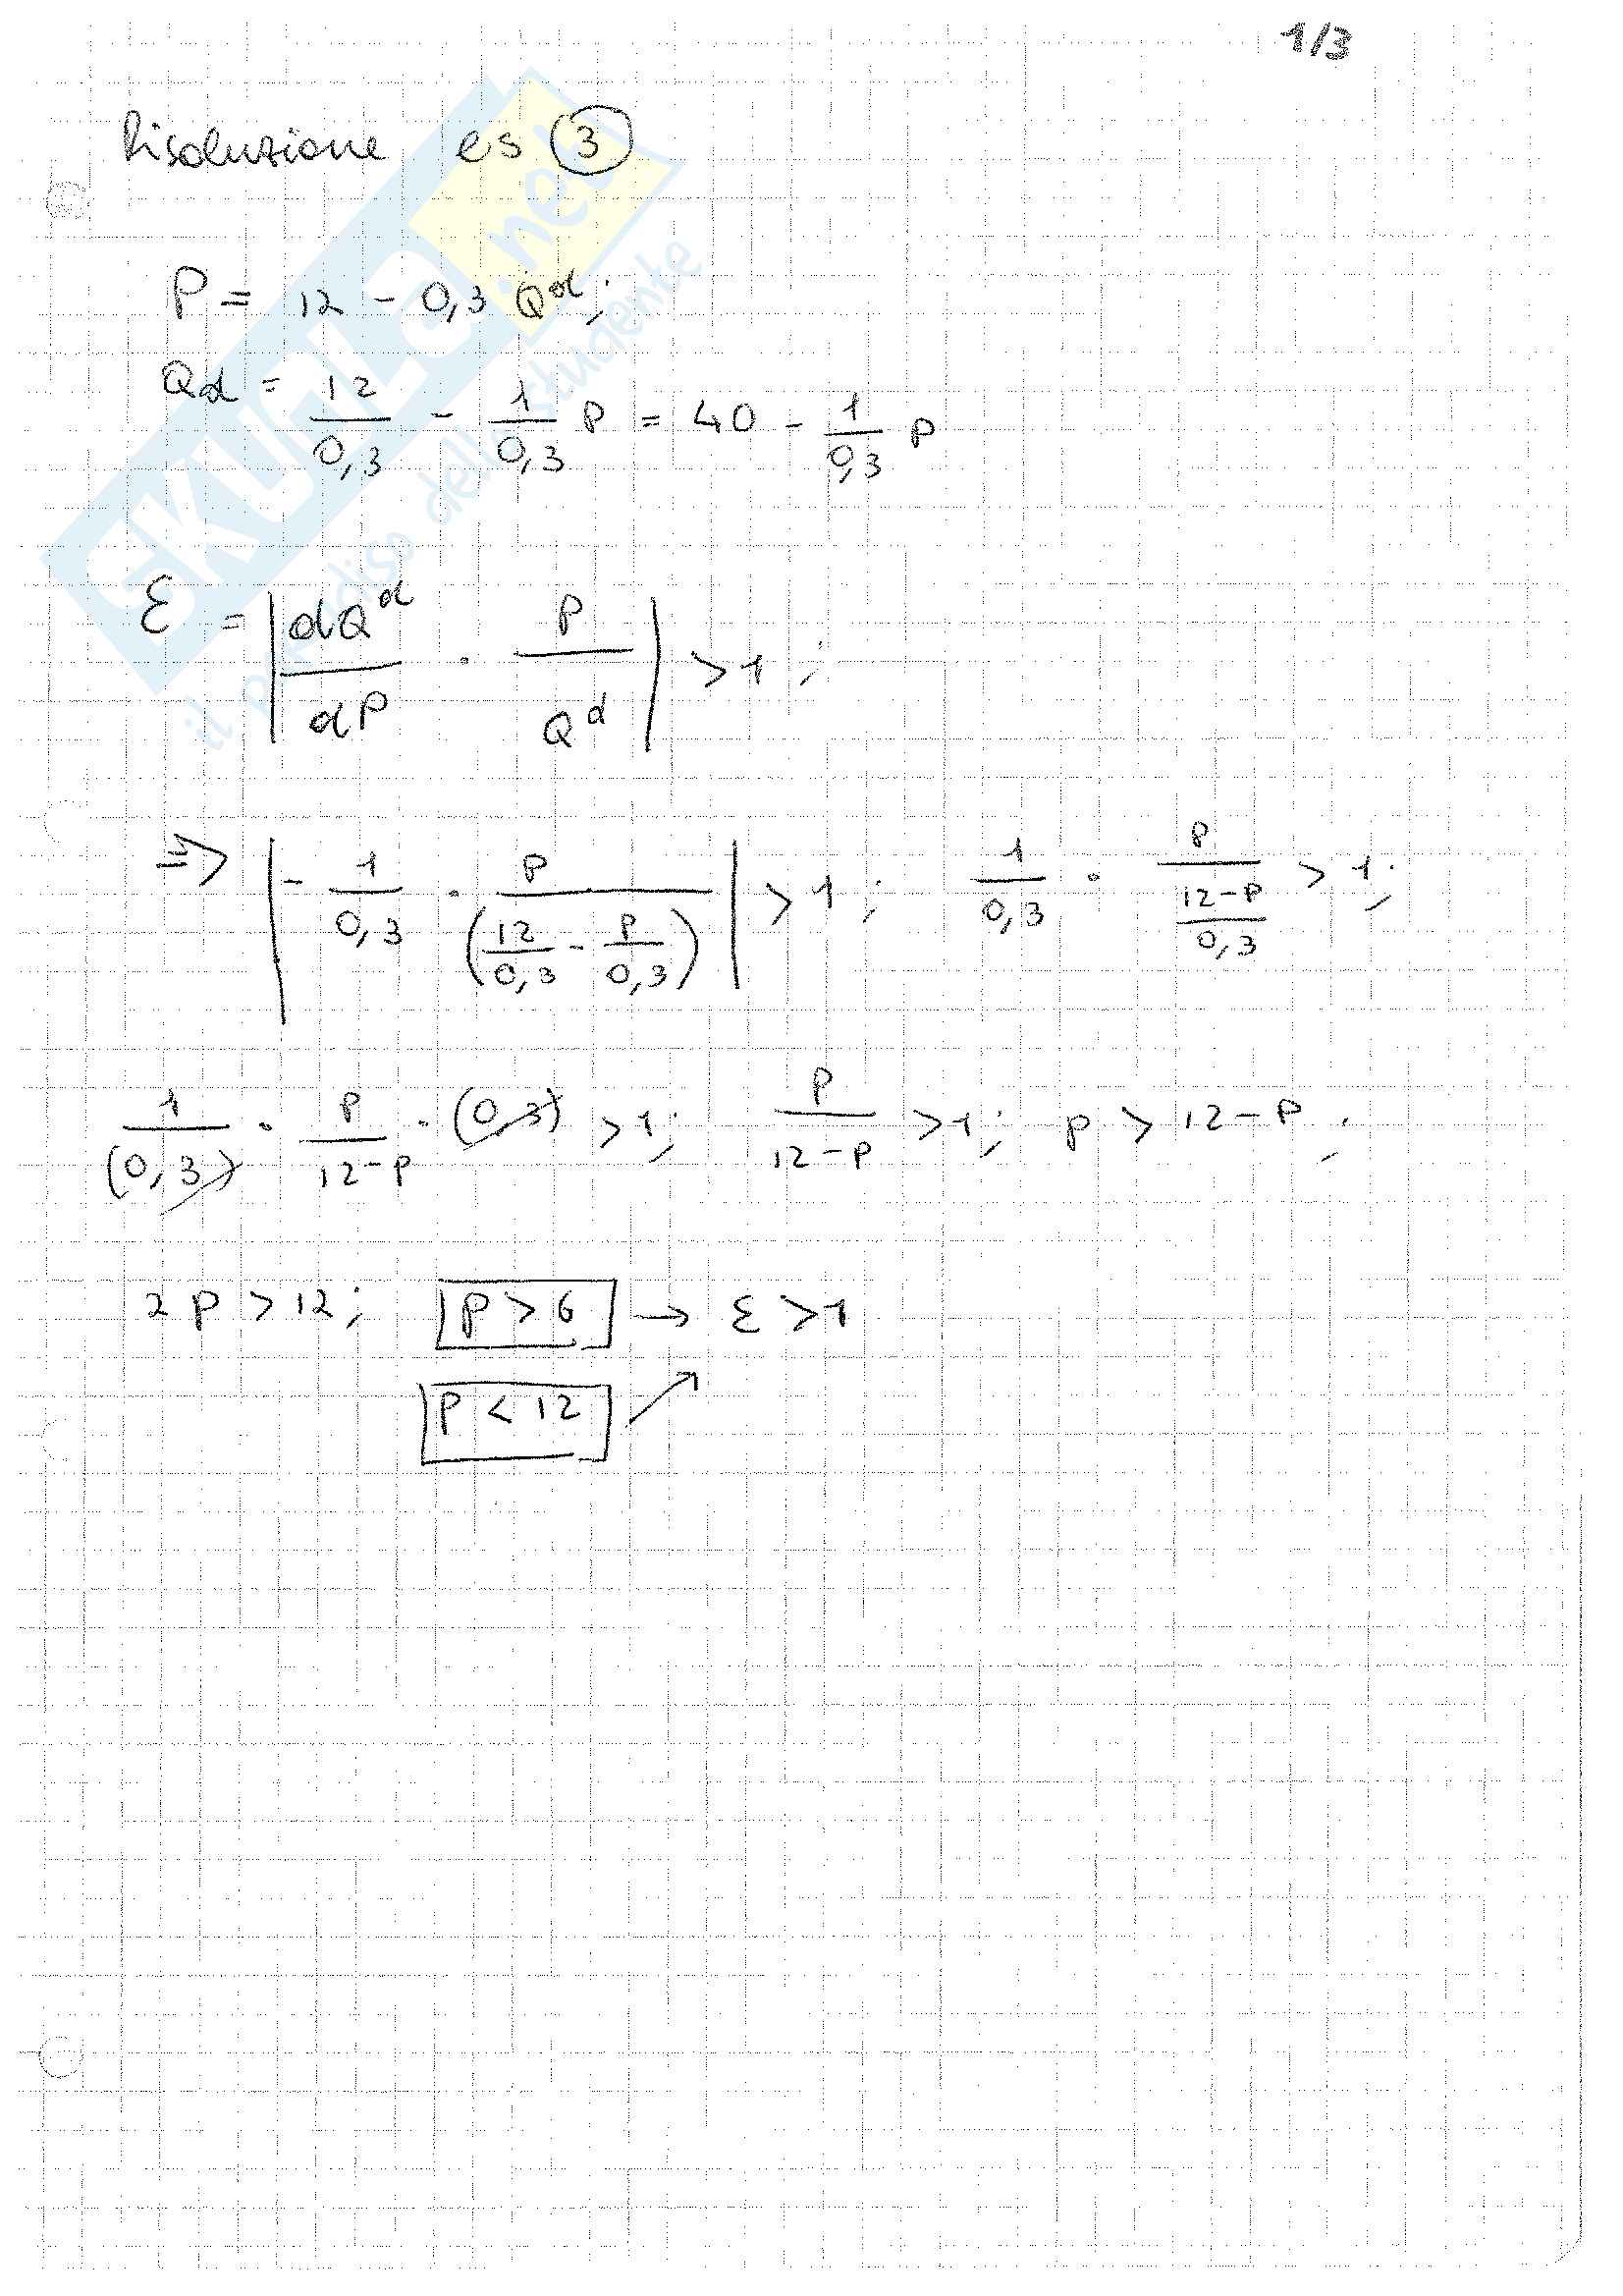 1/3
Risoluzione es 3
P = 12 - 0,3 Q^d;
Qd = 12/0,3 - 1/0,3 P = 40 - 1/0,3 P
ε = | dQ^d/dP · P/Q^d | > 1;
⇒ | - 1/0,3 · P/(12/0,3 - P/0,3) | > 1; 1/0,3 · P/((12-P)/0,3) > 1;
1/(0,3) · P/(12-P) · (0,3) > 1; P/(12-P) > 1; P > 12-P;
2P > 12; P > 6 → ε > 1
P < 12 ↗
SKUOLA.net
il paradiso dello studente